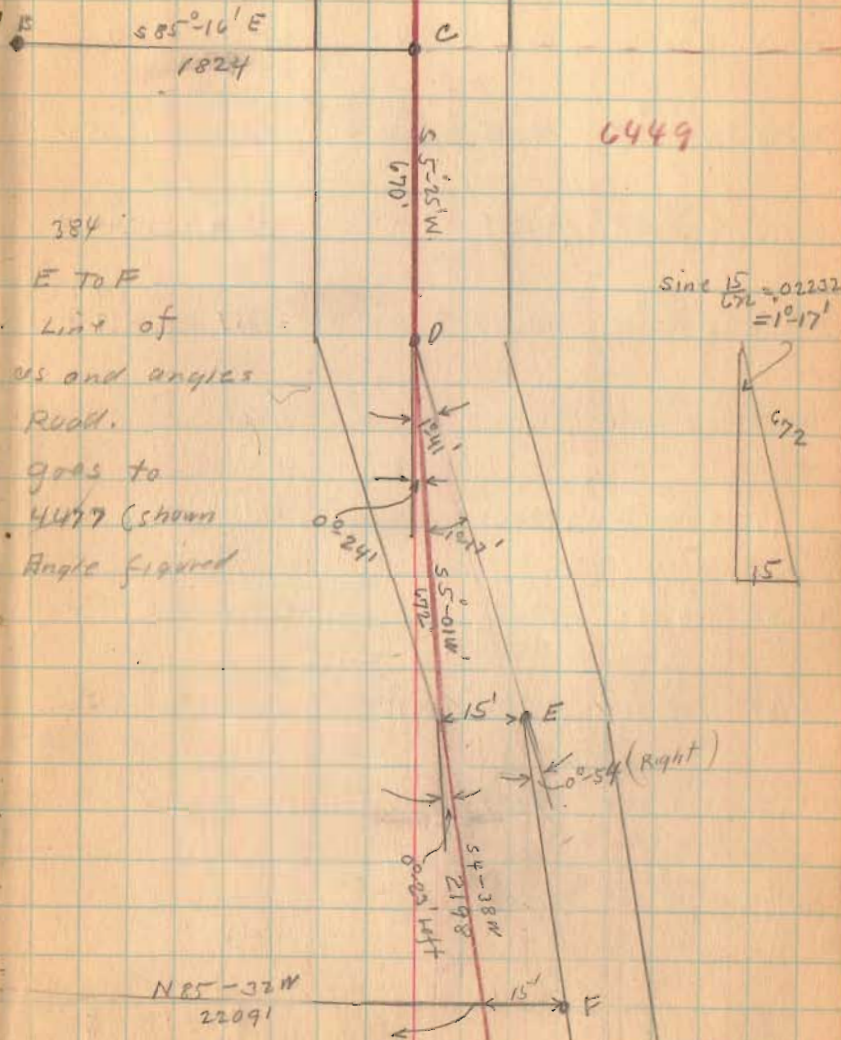 B
S 85°-16' E
1824
C
6449
S 5°-25' W.
670'
384
E TO F
Line of
us and angles
Road.
goes to
4477 (shown
Angle figured
sine 15/672 = .02232
= 1°-17'
672
15
D
1°-41'
0°-24'
1°-17'
S 5°-01 W'
672'
15'
E
0°-54 (Right)
0°-23' Left
S 4-38 W
2198
N 85-32 W
22091
15'
F